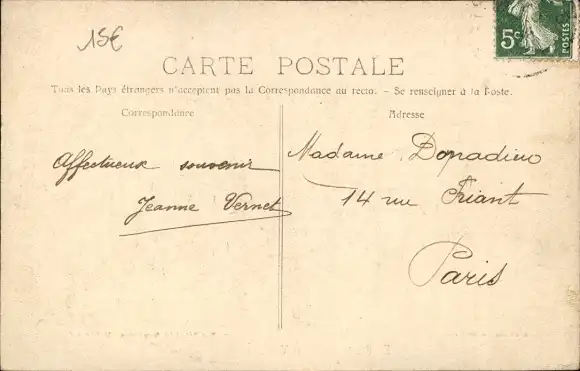 15€
5c
POSTES
CARTE POSTALE
Tous les Pays étrangers n'acceptent pas la Correspondance au recto. - Se renseigner à la Poste.
Correspondance
Adresse
Affectueux souvenir
Jeanne Vernet
Madame Donadieu
14 rue Friant
Paris